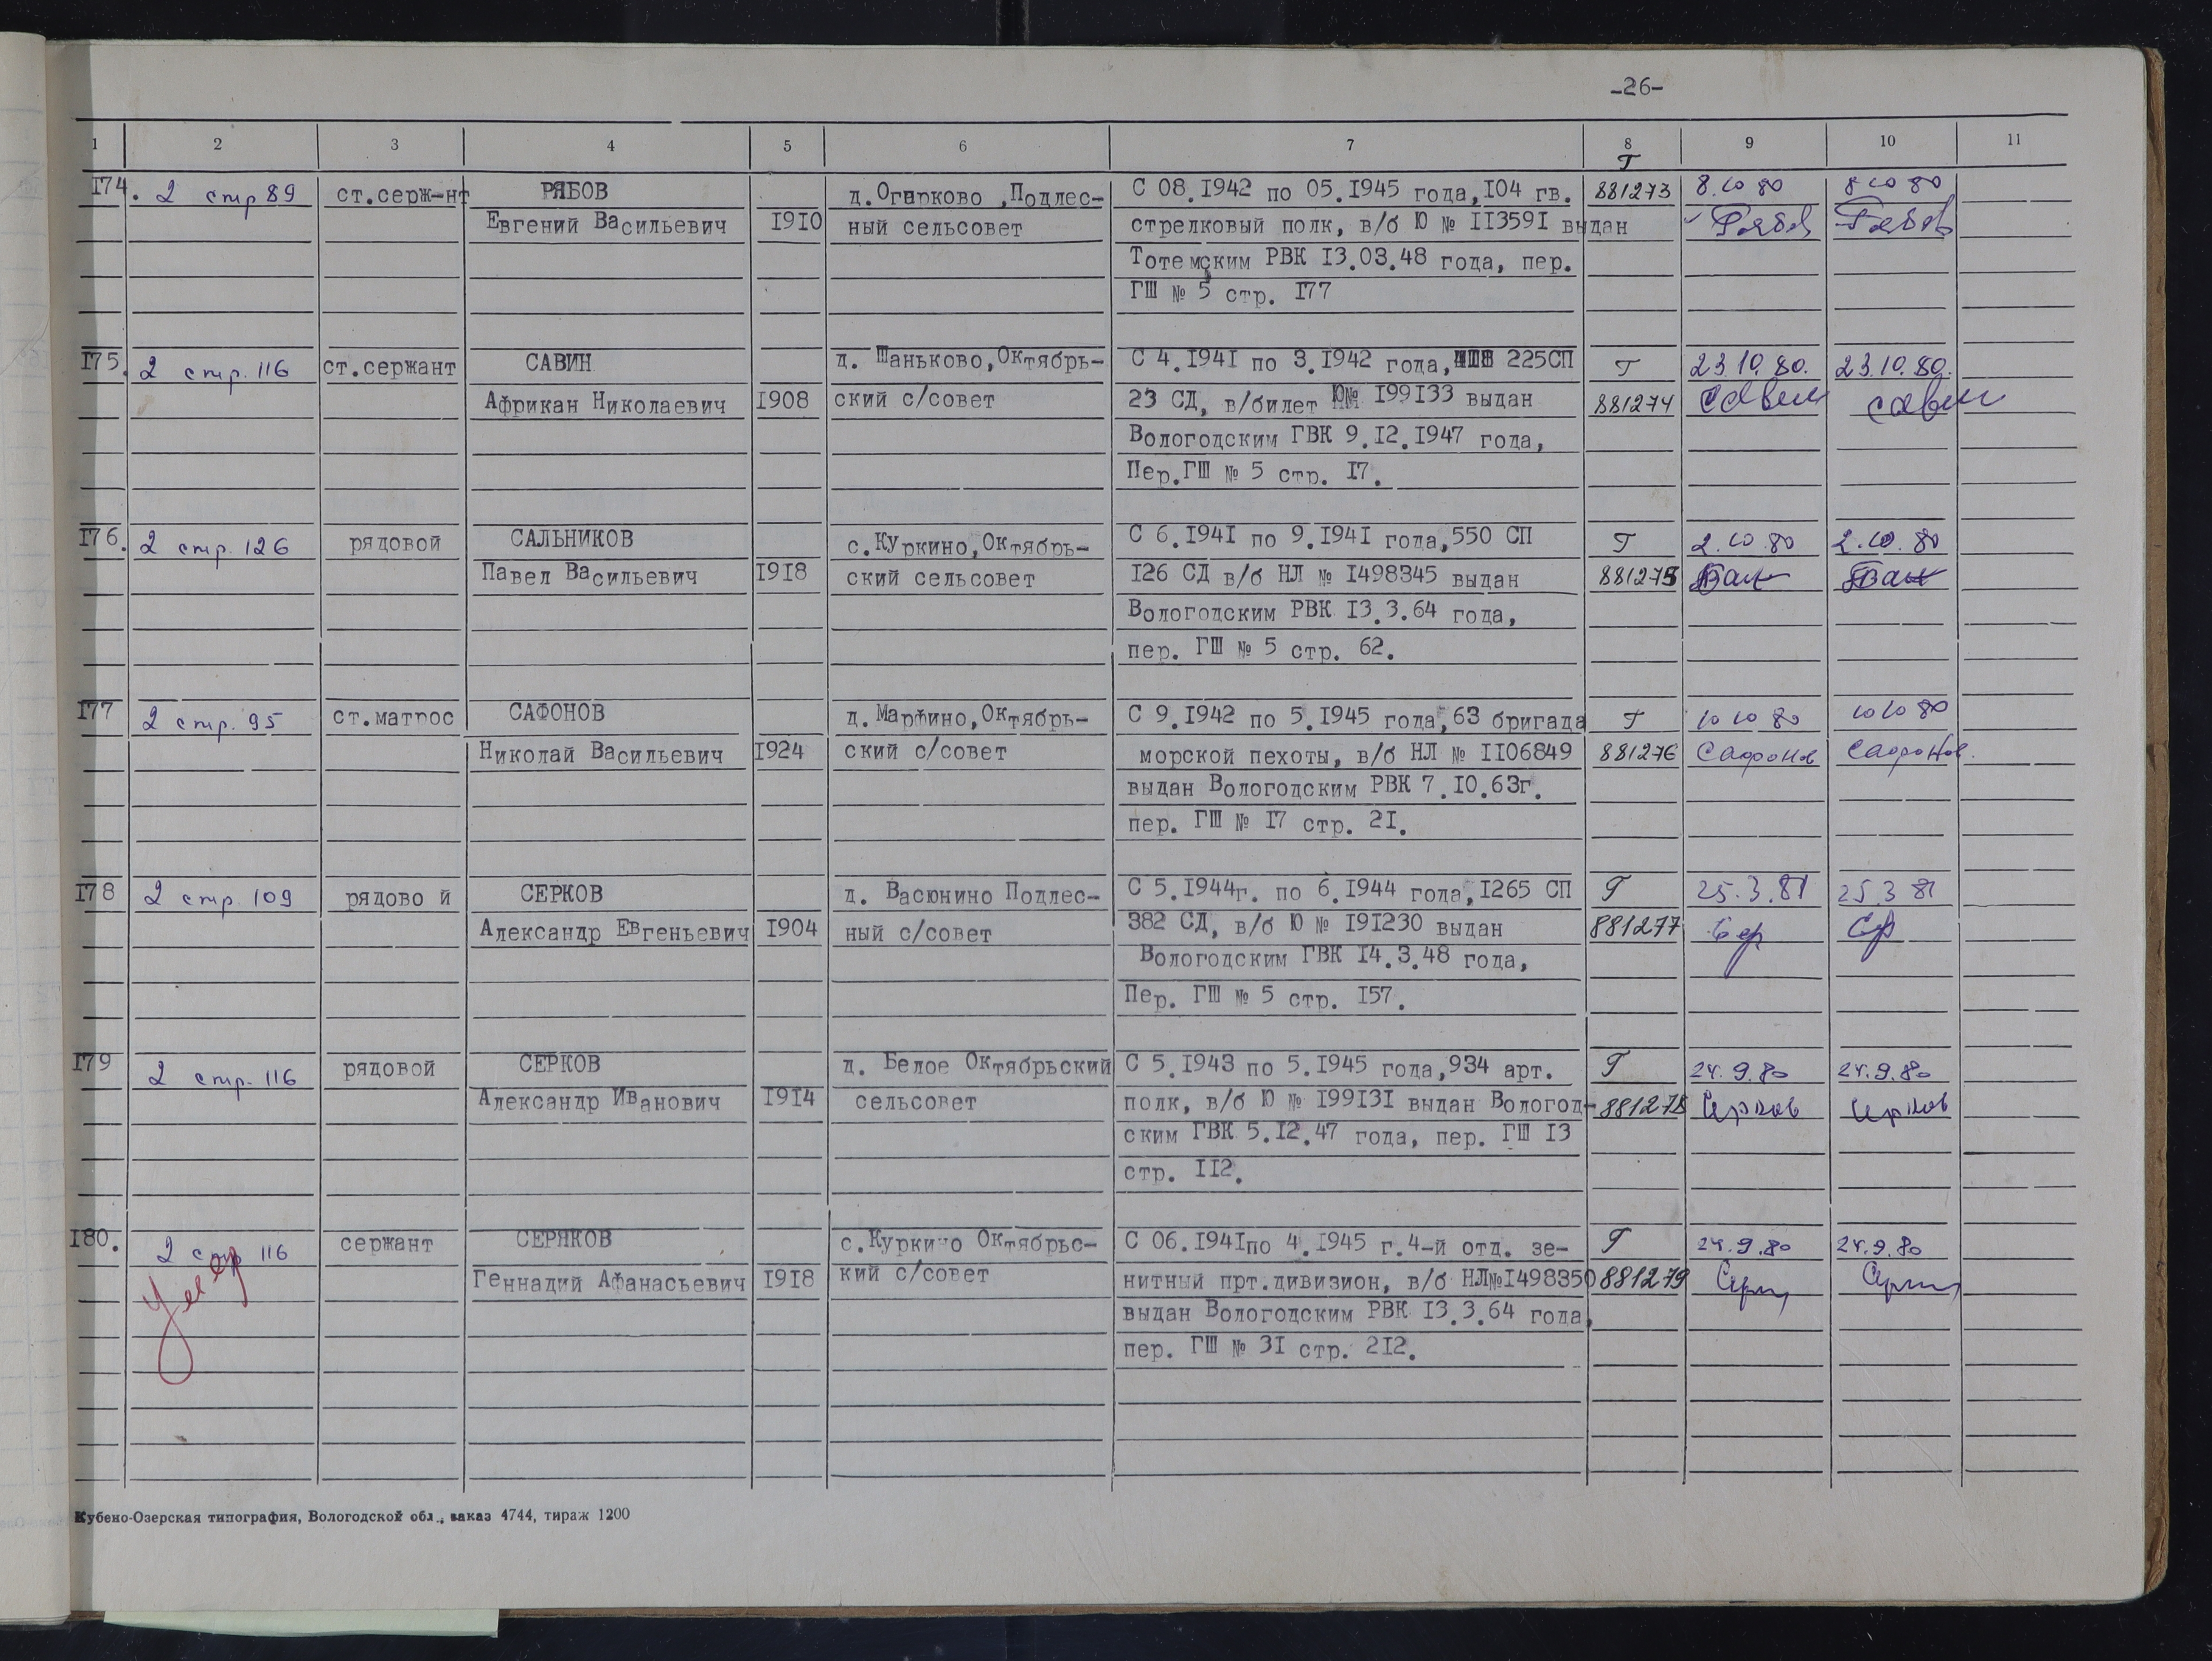 -26-
1 2 3 4 5 6 7 8 9 10 11
Т
174. 2 стр 89 ст.серж-нт РЯБОВ д.Огарково ,Подлес- С 08.1942 по 05.1945 года,104 гв. 881273 8.10 80 8 10 80
Евгений Васильевич 1910 ный сельсовет стрелковый полк, в/б Ю № 113591 выдан Рябов Рябов
Тотемским РВК 13.03.48 года, пер.
ГШ № 5 стр. 177
175. 2 стр. 116 ст.сержант САВИН д. Шаньково,Октябрь- С 4.1941 по 3.1942 года, 225СП Т 23.10.80. 23.10.80.
Африкан Николаевич 1908 ский с/совет 23 СД, в/билет Ю№ 199133 выдан 881274 Савин Савин
Вологодским ГВК 9.12.1947 года,
Пер.ГШ № 5 стр. 17.
176. 2 стр. 126 рядовой САЛЬНИКОВ с.Куркино,Октябрь- С 6.1941 по 9.1941 года,550 СП Т 2.10.80 2.10.80
Павел Васильевич 1918 ский сельсовет 126 СД в/б НЛ № 1498345 выдан 881275
Вологодским РВК 13.3.64 года,
пер. ГШ № 5 стр. 62.
177 2 стр. 95 ст.матрос САФОНОВ д.Марфино,Октябрь- С 9.1942 по 5.1945 года,63 бригада Т 10 10 80 10 10 80
Николай Васильевич 1924 ский с/совет морской пехоты, в/б НЛ № 1106849 881276 Сафонов Сафонов.
выдан Вологодским РВК 7.10.63г.
пер. ГШ № 17 стр. 21.
178 2 стр. 109 рядово й СЕРКОВ д. Васюнино Подлес- С 5.1944г. по 6.1944 года,1265 СП Т 25.3.81 25.3 81
Александр Евгеньевич 1904 ный с/совет 382 СД, в/б Ю № 191230 выдан 881277 Сер Ср
Вологодским ГВК 14.3.48 года,
Пер. ГШ № 5 стр. 157.
179 2 стр. 116 рядовой СЕРКОВ д. Белое Октябрьский С 5.1943 по 5.1945 года,934 арт. Т 24.9.80 24.9.80
Александр Иванович 1914 сельсовет полк, в/б Ю № 199131 выдан Вологод- 881278 Серков Серков
ским ГВК 5.12.47 года, пер. ГШ 13
стр. 112.
180. 2 стр 116 сержант СЕРЯКОВ с.Куркино Октябрьс- С 06.1941по 4.1945 г.4-й отд. зе- Т 24.9.80 24.9.80
умер Геннадий Афанасьевич 1918 кий с/совет нитный прт.дивизион, в/б НЛ№1498350 881279
выдан Вологодским РВК 13.3.64 года,
пер. ГШ № 31 стр. 212.
Кубено-Озерская типография, Вологодской обл., заказ 4744, тираж 1200